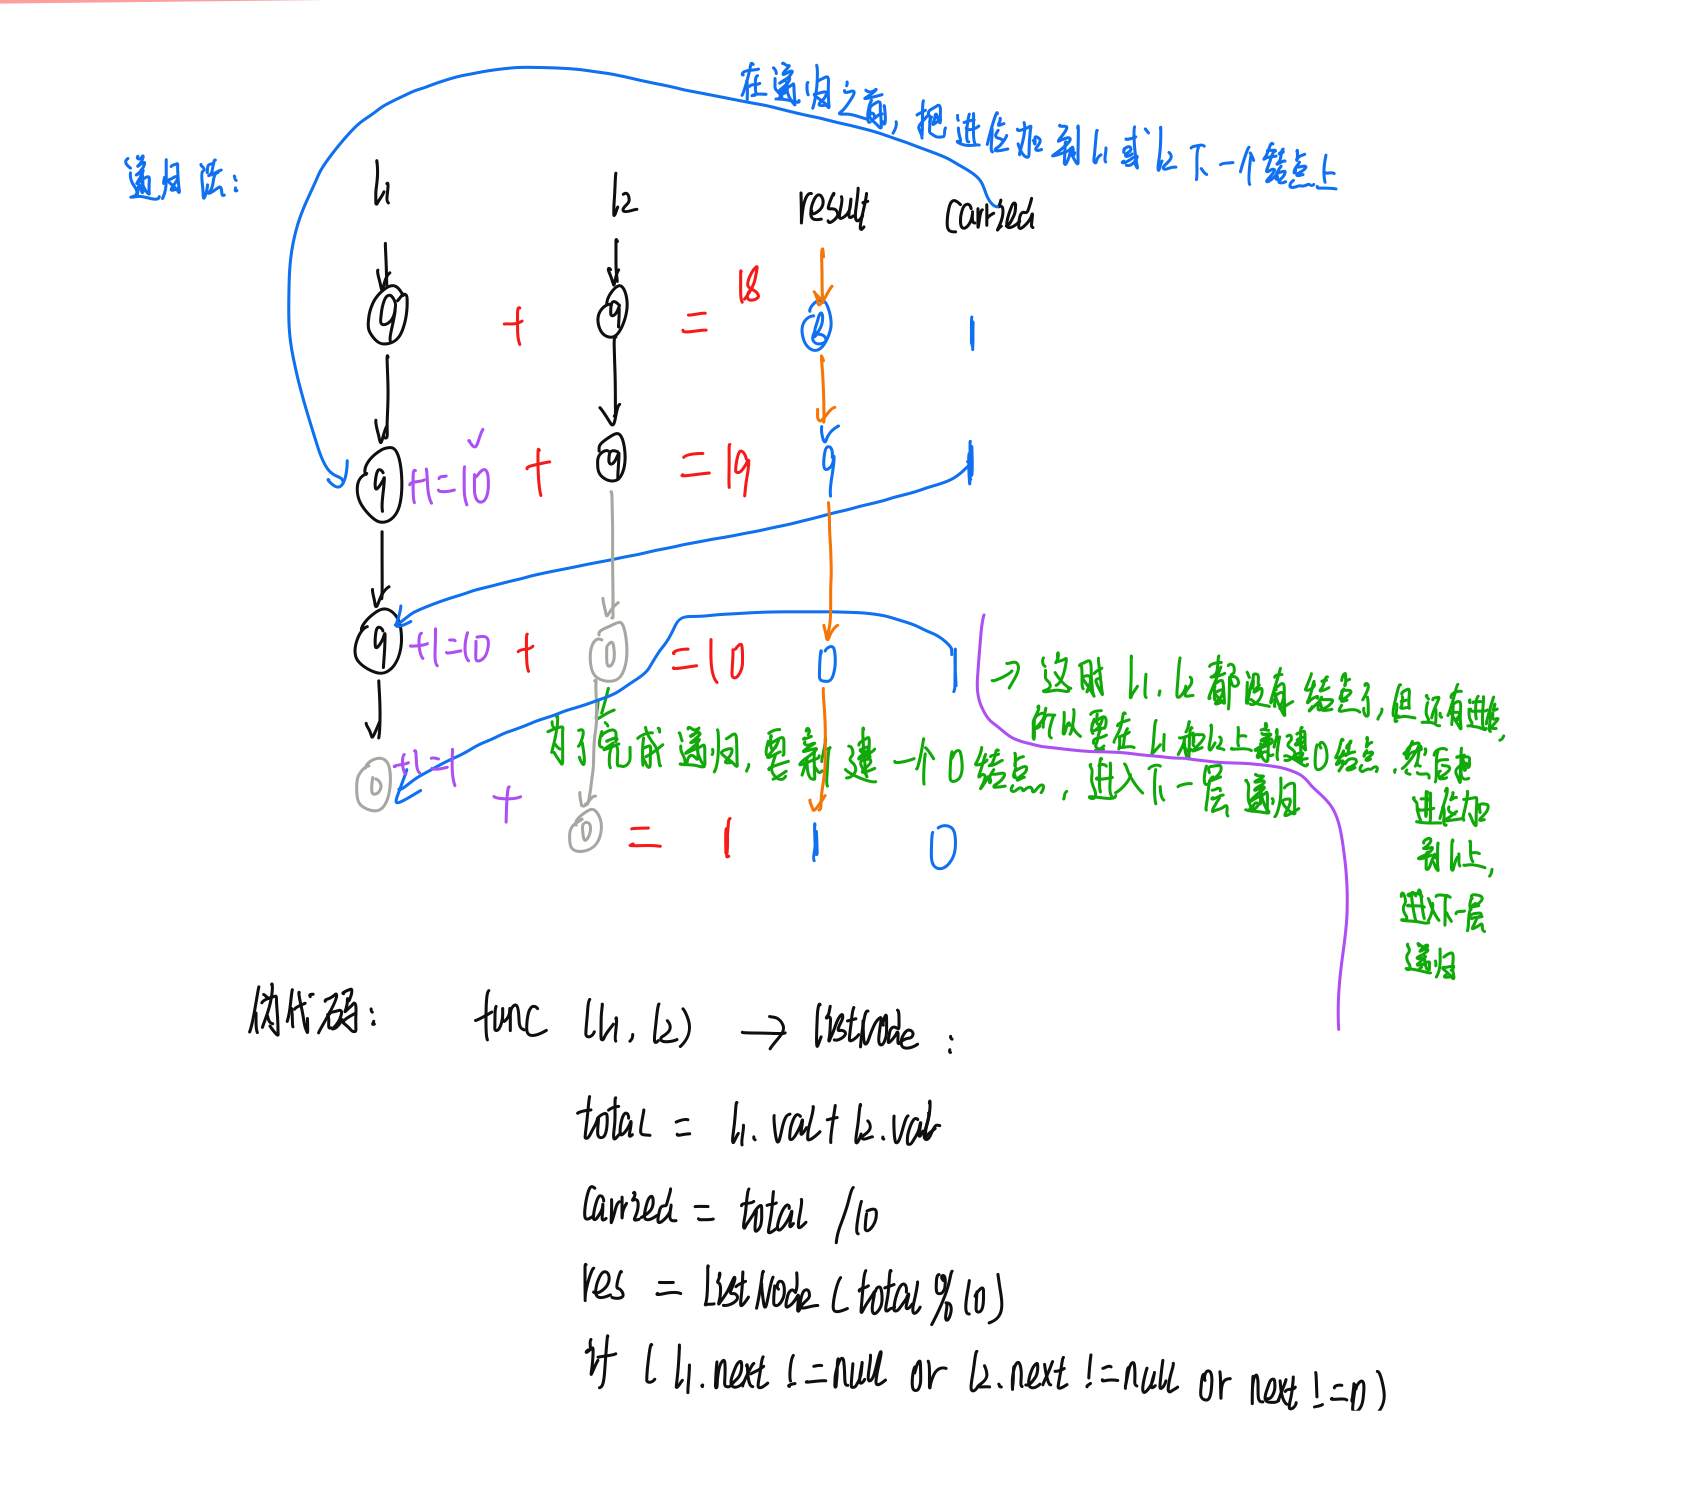 在递归之前，把进位加到l1或l2下一个结点上
递归法：
l1 l2 result carried
9 + 9 = 18 8 1
9 +1=10 + 9 = 19 9 1
9 +1=10 + 0 = 10 0 1
→ 这时l1，l2都没有结点了，但还有进位，
所以要在l1和l2上新建0结点，然后把
进位加
到l1上，
进入下一层
递归
为了完成递归，要新建一个0结点，进入下一层递归
0 +1=1 + 0 = 1 1 0
伪代码： func (l1, l2) → listNode :
total = l1.val + l2.val
carried = total /10
res = ListNode (total%10)
if ( l1.next !=null or l2.next !=null or next !=0)